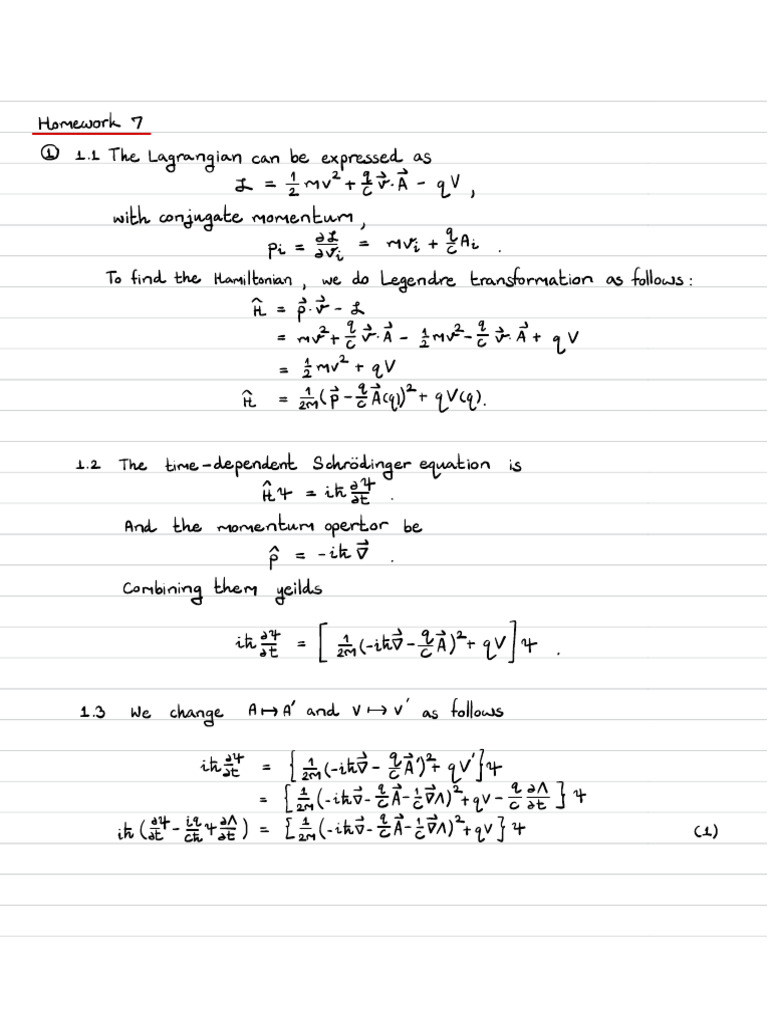 Homework 7
① 1.1 The Lagrangian can be expressed as
ℒ = 1/2 mv² + q/c v⃗·A⃗ - qV,
with conjugate momentum,
pᵢ = ∂ℒ/∂vᵢ = mvᵢ + q/c Aᵢ .
To find the Hamiltonian, we do Legendre transformation as follows:
Ĥ = p⃗·v⃗ - ℒ
= mv² + q/c v⃗·A⃗ - 1/2 mv² - q/c v⃗·A⃗ + qV
= 1/2 mv² + qV
Ĥ = 1/2M (p⃗ - q/c A⃗(q))² + qV(q).
1.2 The time-dependent Schrödinger equation is
ĤΨ = iħ ∂Ψ/∂t .
And the momentum opertor be
p̂ = -iħ∇⃗ .
Combining them yeilds
iħ ∂Ψ/∂t = [ 1/2M (-iħ∇⃗ - q/c A⃗)² + qV ] Ψ .
1.3 We change A ↦ A' and V ↦ V' as follows
iħ ∂Ψ/∂t = { 1/2M (-iħ∇⃗ - q/c A⃗')² + qV' } Ψ
= [ 1/2M (-iħ∇⃗ - q/c A⃗ - 1/c ∇⃗Λ)² + qV - q/c ∂Λ/∂t ] Ψ
iħ (∂Ψ/∂t - iq/cħ Ψ ∂Λ/∂t) = [ 1/2M (-iħ∇⃗ - q/c A⃗ - 1/c ∇⃗Λ)² + qV } Ψ (1)